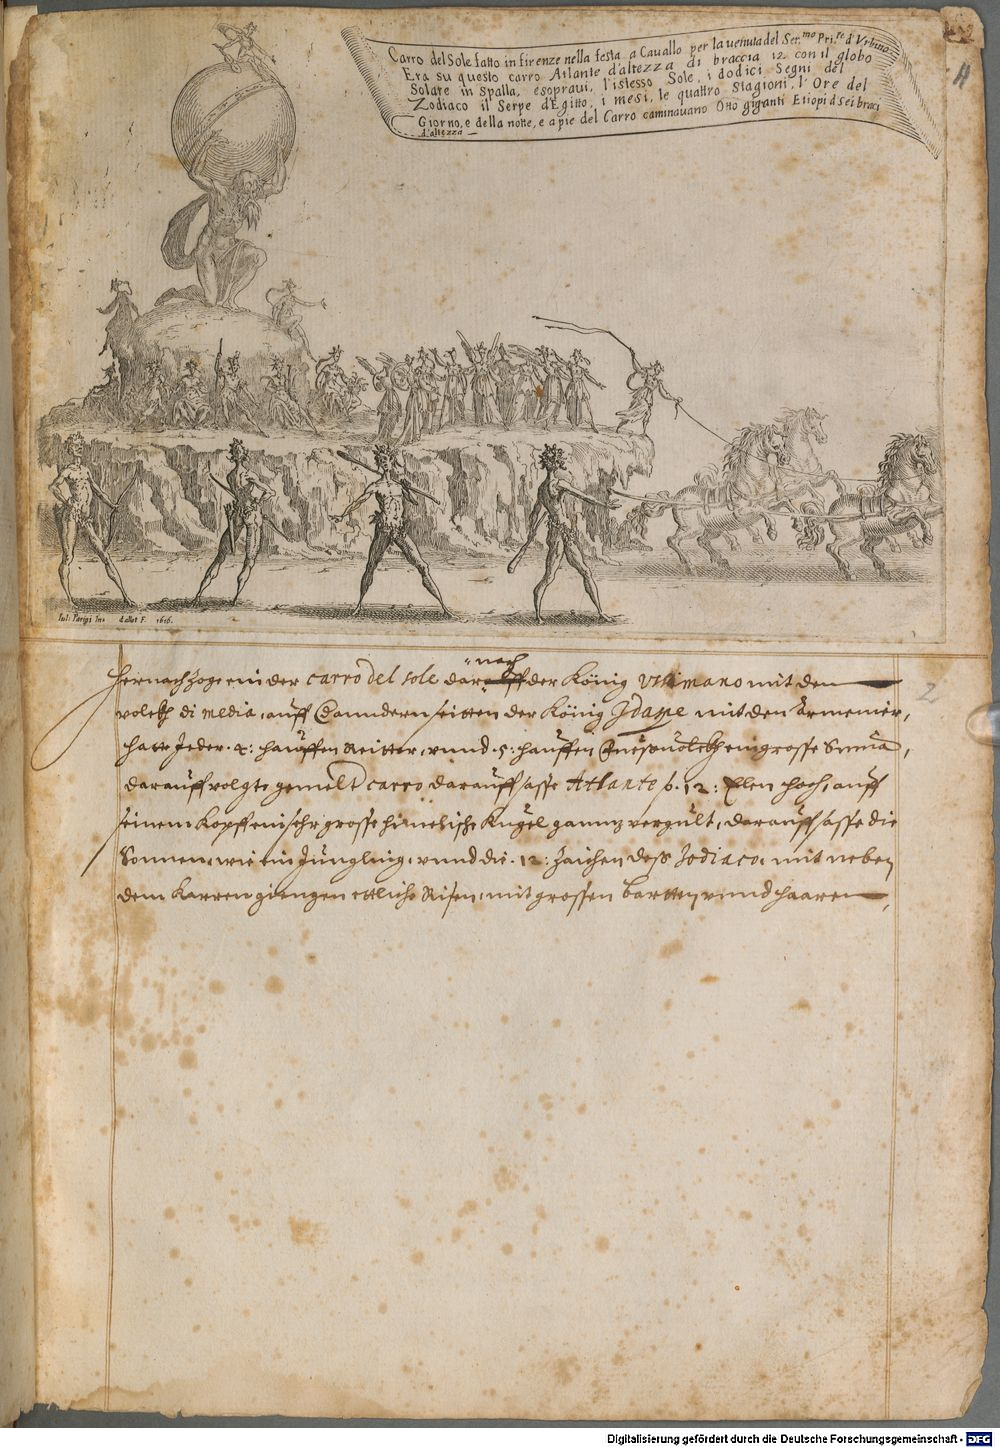 Carro del Sole fatto in firenze nella festa a Cauallo per la uenuta del Ser.mo Pri.pe d'Vrbino
Era su questo carro Atlante d'altezza di braccia 12 con il globo
Solare in Spalla, esopraui, l'istesso Sole, i dodici Segni del
Zodiaco il Serpe d'Egitto, i mesi, le quattro Stagioni, l'Ore del
Giorno, e della notte, e a pie del Carro caminauano Otto giganti Etiopi d Sei braci
d'altezza
Iul: Parigi In. d allot F. 1616.
2
nach
hernach zoge ein der carro del sole dar der König Vrimano mit den
volckh di media, auff Der anndern seitten der König Idaspe mit den Armenier,
hatte Jeder. 4: hauffen Reitter, vnnd .5: hauffen fuesvolckh ein grosse Suma,
darauff volgte gemelt carro darauff sasse Atlante p. 12: Elen hoch, auff
seinem Kopff ein sehr grosse himelische Kugel gannz vergült, darauff sasse die
Sonnen, wie ein Jüngling, vnnd die .12: Zaichen dess Zodiaco, mit neben
dem Karren giengen ettliche Risen, mit grossen bartten vnnd haaren
Digitalisierung gefördert durch die Deutsche Forschungsgemeinschaft - DFG